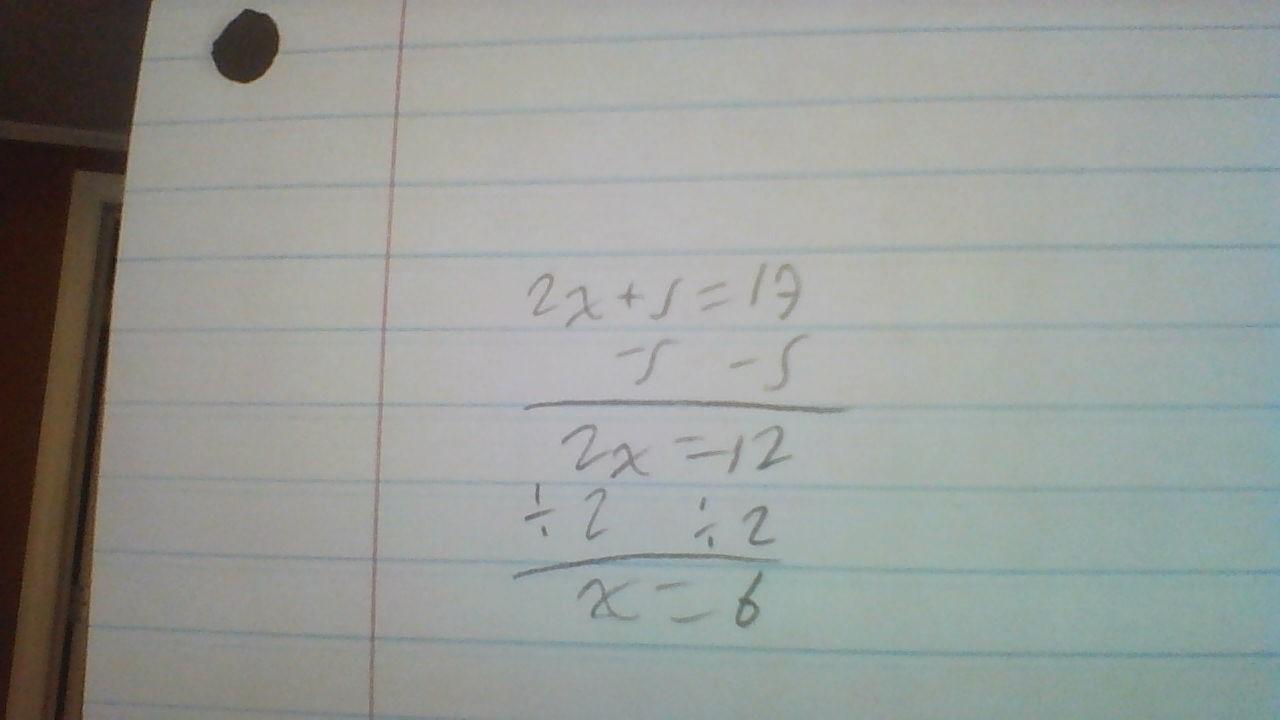 2x+5=17
-5 -5
2x=12
÷2 ÷2
x=6